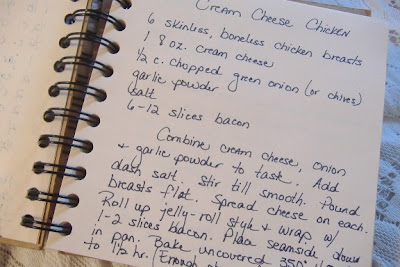 Cream Cheese Chicken
6 skinless, boneless chicken breasts
1 8 oz. cream cheese
1/2 c. chopped green onion (or chives)
garlic powder
salt
6-12 slices bacon
Combine cream cheese, onion
& garlic powder to taste. Add
dash salt. Stir till smooth. Pound
breasts flat. Spread cheese on each.
Roll up jelly-roll style & wrap w/
1-2 slices bacon. Place seamside down
in pan. Bake uncovered 350°
to 1 1/2 hr. (Enough